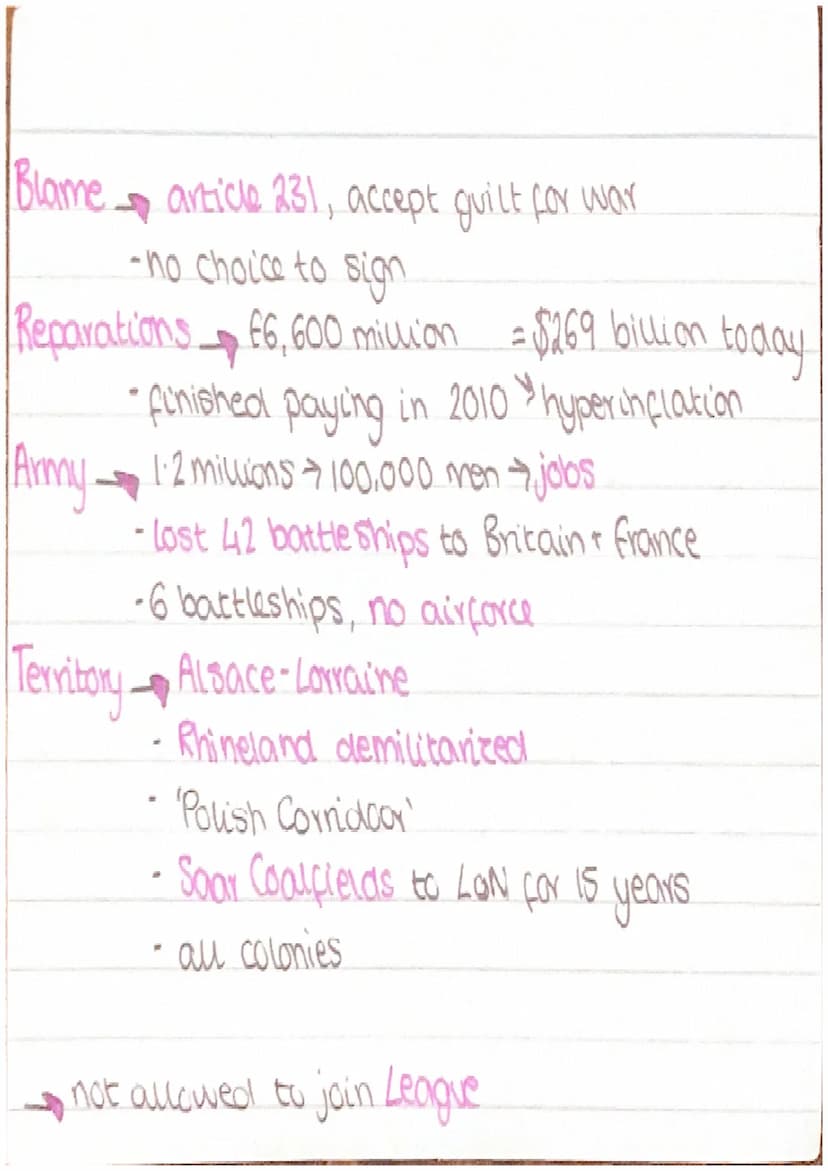 Blame → article 231, accept guilt for war
- no choice to sign
Reparations → £6,600 million = $269 billion today
- finished paying in 2010 ↘ hyperinflation
Army → 1.2 millions → 100,000 men → jobs
- lost 42 battleships to Britain + France
- 6 battleships, no airforce
Territory → Alsace-Lorraine
- Rhineland demilitarized
- 'Polish Corridoor'
- Saar Coalfields to LoN for 15 years
- all colonies
→ not allowed to join League